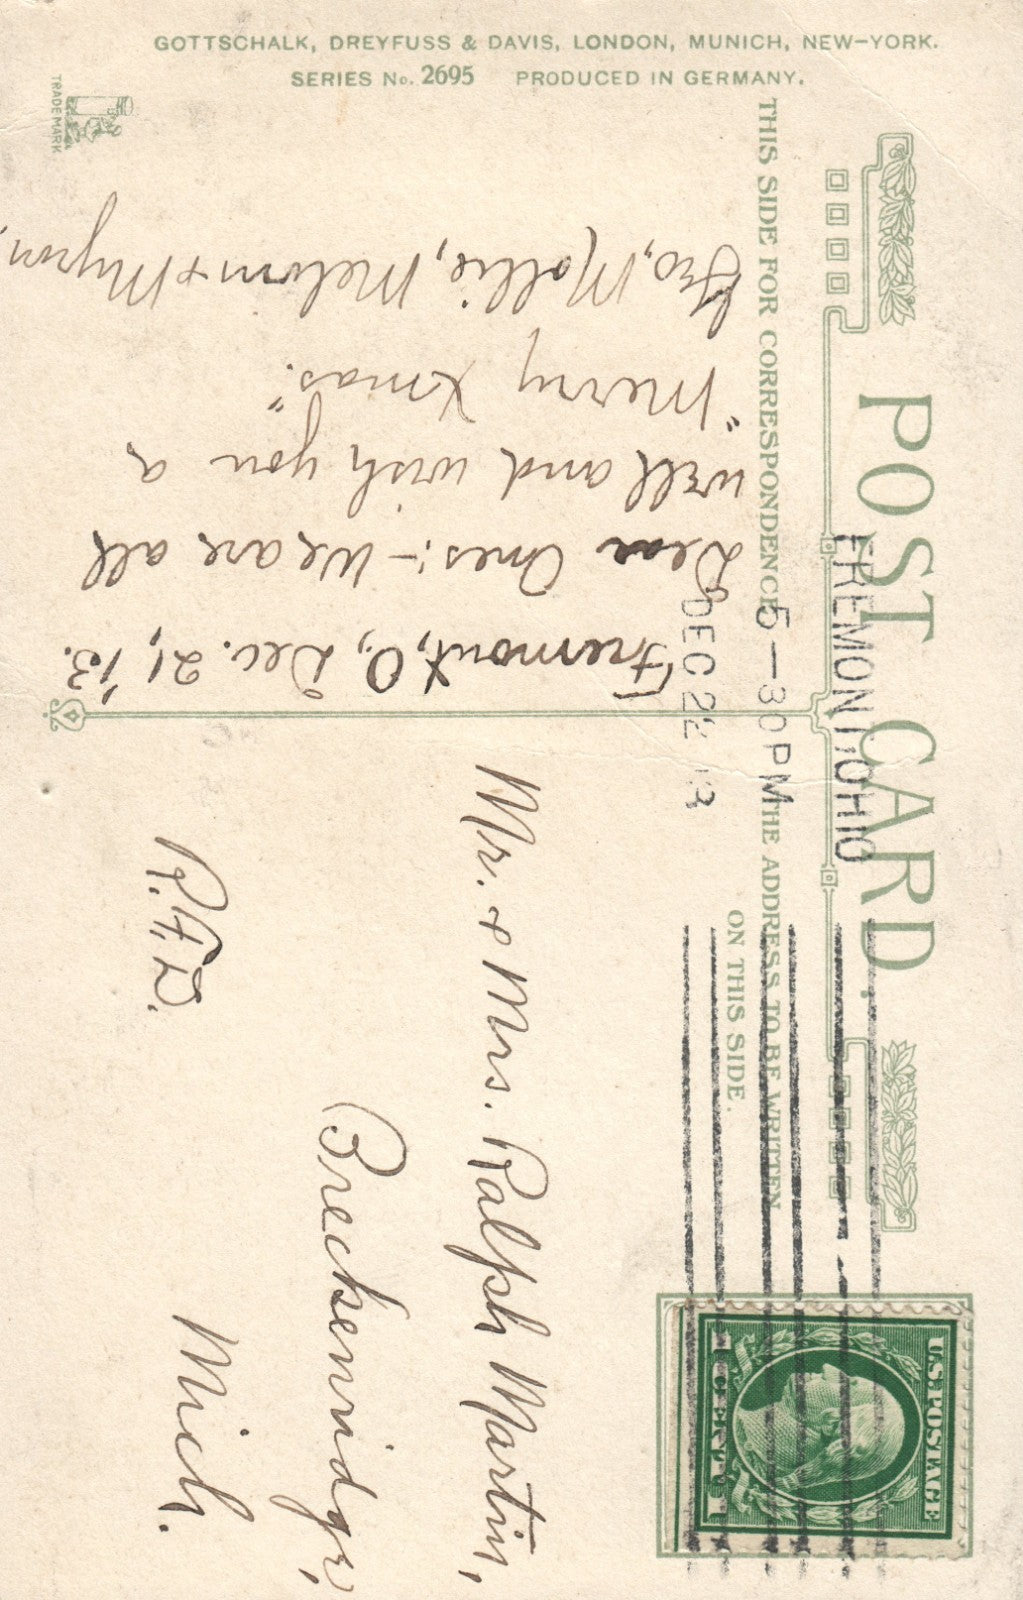 GOTTSCHALK, DREYFUSS & DAVIS, LONDON, MUNICH, NEW-YORK.
SERIES No. 2695 PRODUCED IN GERMANY.
TRADE MARK
POST CARD.
THIS SIDE FOR CORRESPONDENCE
THE ADDRESS TO BE WRITTEN
ON THIS SIDE.
FREMONT, OHIO
5-30 PM
DEC 22 13
U.S. POSTAGE
1 CENT 1
Fremont, O, Dec. 21, '13.
Dear Ones:- We are all
well and wish you a
"Merry Xmas."
Geo, Mollie, Melvin & Myron.
Mr. & Mrs. Ralph Martin,
Breckenridge,
R.F.D. Mich.